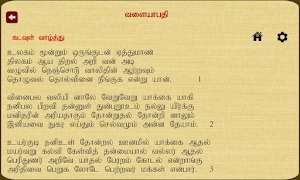 வளையாபதி
கடவுள் வாழ்த்து
உலகம் மூன்றும் ஒருங்குடன் ஏத்துமாண்
திலகம் ஆய திறல் அறி வன் அடி
வழுவில் நெஞ்சொடு வாலிதின் ஆற்றவும்
தொழுவல் தொல்வினை நீங்குக என்று யான். 1
வினைபல வலியி னாலே வேறுவேறு யாக்கை யாகி
நனிபல பிறவி தன்னுள் துன்புறூஉம் நல்லு யிர்க்கு
மனிதரின் அரியதாகும் தோன்றுதல் தோன்றி னாலும்
இனியவை நுகர எய்தும் செல்வமும் அன்ன தேயாம். 2
உயர்குடி நனிஉள் தோன்றல் ஊனமில் யாக்கை ஆதல்
மயர்வறு கல்வி கேள்வித் தன்மையால் வல்லர் ஆதல்
பெரிதுணர் அறிவே யாதல் பேரறம் கோடல் என்றாங்கு
அரிதிவை பெறுக லோடே பெற்றவர் மக்கள் என்பார். 3